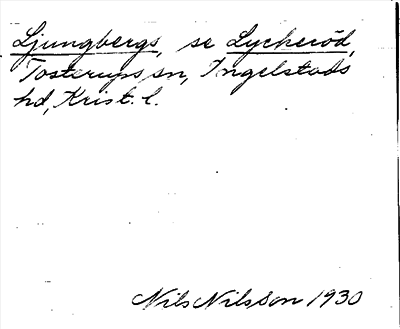 Ljungbergs, se Lyckeröd,
Tosterups sn, Ingelstads
hd, Krist. l.
Nils Nilsson 1930